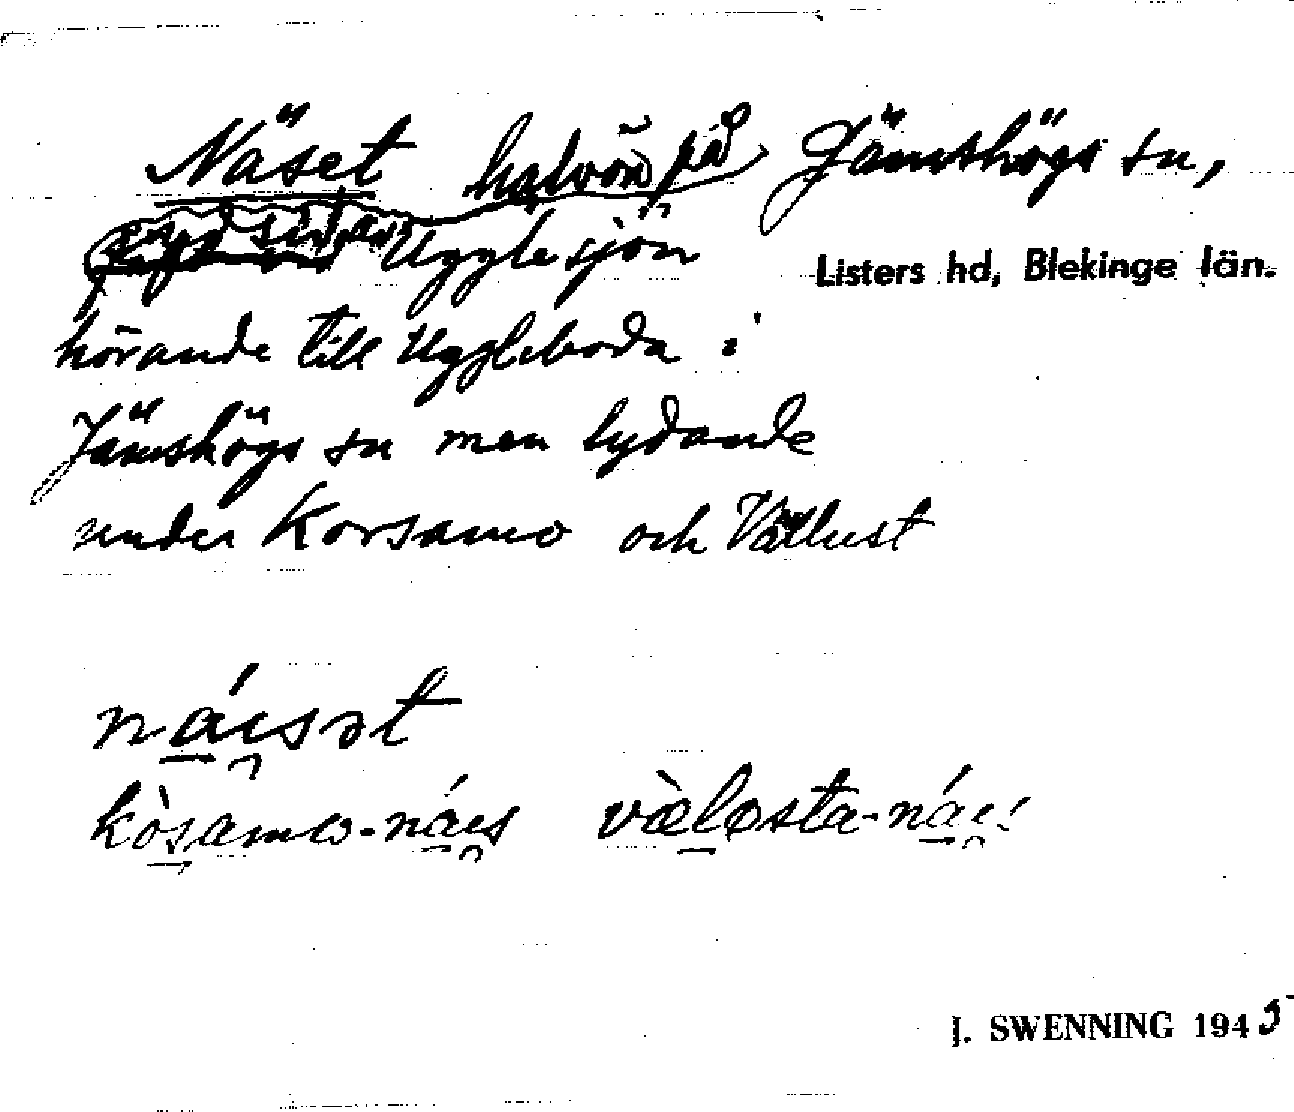 Näset halvön på Jämshögs sn,
Ugglesjön
Listers hd, Blekinge län.
hörande till Uggleboda i
Jämshögs sn men lydande
under Korsamo och Vällust
náısət
kòsamo-náıs vælosta-náıs
J. SWENNING 1945